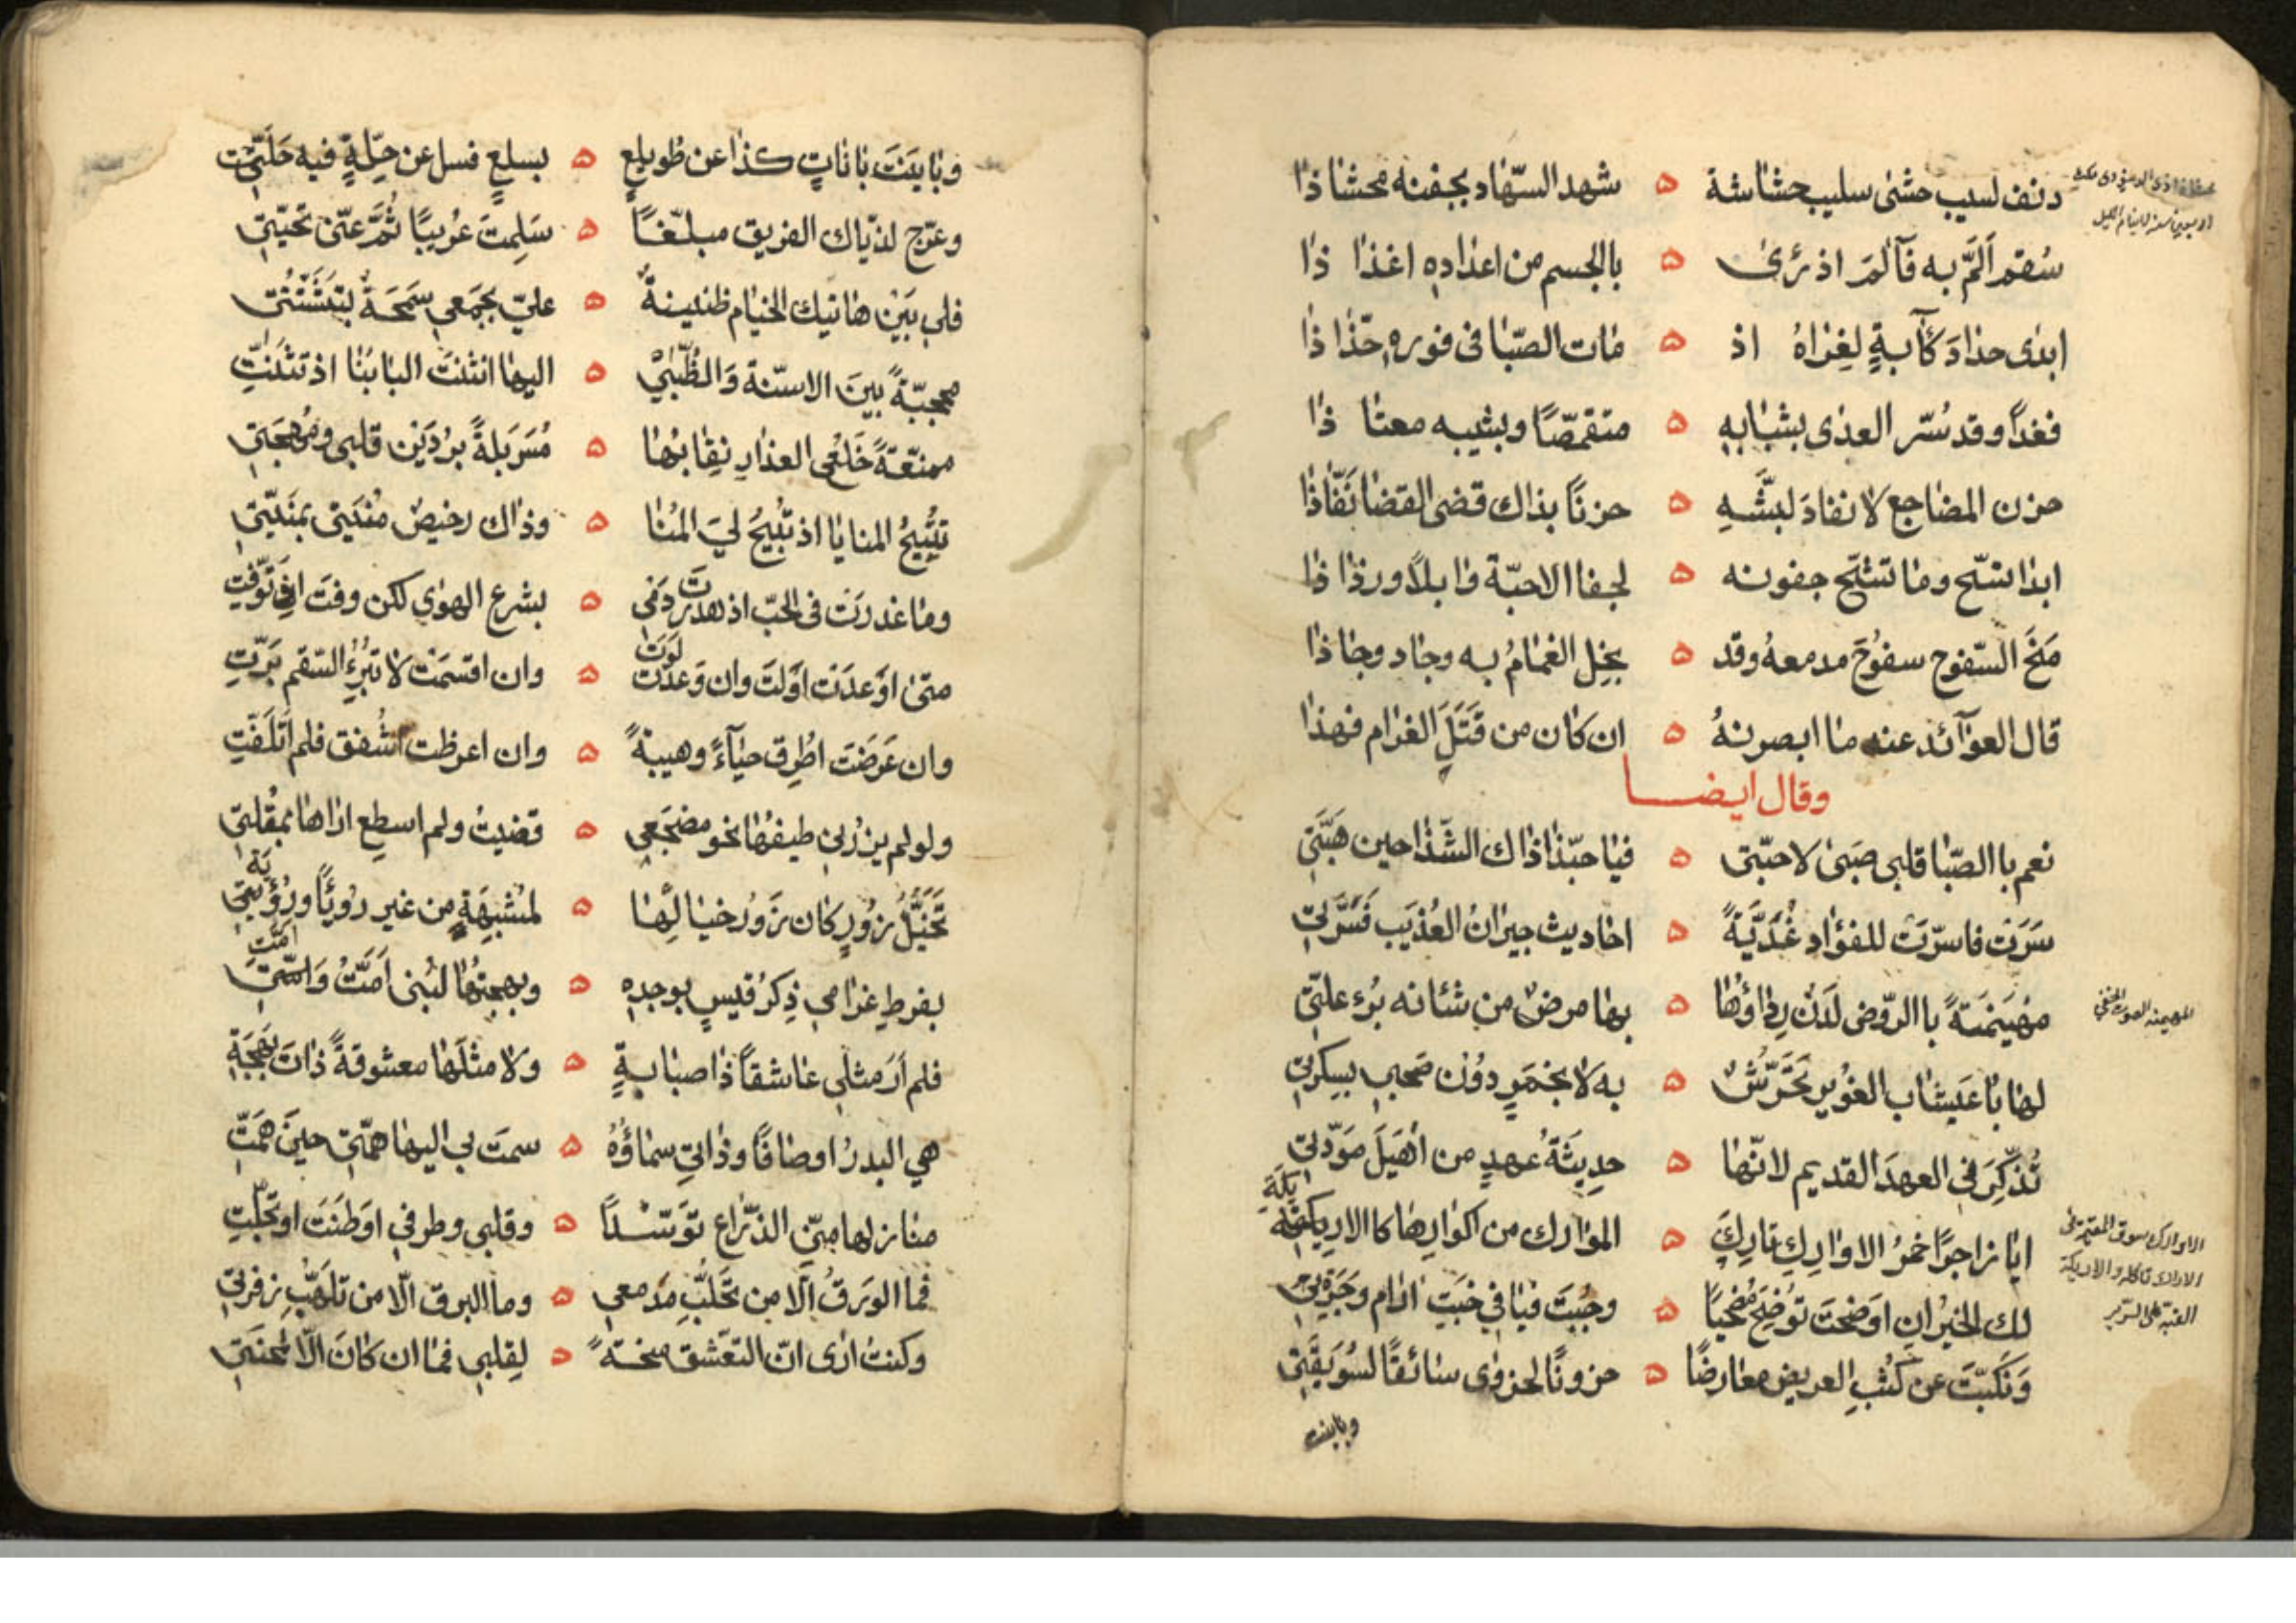 دنف لسيب حشى سليب حشاشة ه شهد السهاد بجفنه محشا ذا
سُقم اَلَمَّ به فآلمَ اذ رَئ ه بالجسم من اعداده اغذا ذا
ابدى حداد كآبةٍ لغزاهُ اذ ه مات الصّبا فى فوره جذا ذا
فغداً وقد سُرّ العدى بشبابه ه متقمصًا وبشيبه معتا ذا
حزن المضاجع لا نفادَ لبثّهِ ه حزنًا بذاك قضى القضا نَفّاذا
ابدا تسّح وما تشحّ جفونه ه لجفا الاحبّة وا بلاً ورذا ذا
مَنَحَ السّفوح سفوُحَ مدمعهُ وقد ه بخِل الغمامُ به وجاد وجا ذا
قال العوآئد عنه ما ابصرنهُ ه ان كان من قَتَلَ الغرام فهذا
وقال ايضا
نعم با الصّبا قلبى صَبى لاحبّتى ه فيا حبّذا ذاك الشّذا حين هَبَّتِ
سَرَت فاسرّت للفؤاد غُدَيَّةً ه احاديث جيرانُ العُذيَب فَسَرَّتِ
مُهَيَمنَةً با الروّض لَدنٌ رِداؤها ه بها مرضٌ من شئانه بُرءُ علتى
المهيمنه الصوت الخفي
لها با عَيشاب الغُوير تحَرّشٌ ه به لا بخمرٍ دوُن صَحبي بسِكرتي
تُذكِّرَني العهدَ القديم لانّها ه حدِيثَةُ عهدٍ من اُهَيلَ مَودّتي
ايا زاجرًا حُمرُ الاوارِكِ تارِكَ ه الموارك من اكوارِها كا الاريكةِ
يكَةِ
لك الخيرُ ان اوضحتَ توُضِحَ مُضحيًا ه وجُبتَ فيافي خَبتِ ارام وجرَةِ
وَنَكبّتَ عن كُثبِ العريض معارضًا ه حزونًا لحزوى سائقًا لسُوَيقَتي
وباينت
وبايَنَتَ باناتٍ كذا عن طويلعٍ ه بسلعٍ فسل عن حِلّةٍ فيه حَلَّتِ
وعرّج لذيّاك الفريق مبلّغًا ه سَلِمتَ عُريبًا ثَمَّ عنّى تحيّتي
فلي بَيْن هاتيك الخيام ظنينةٌ ه عليّ بجمعي سَمحَةٌ بتشتّتى
محجبّةً بينَ الاسنّة وَالظُّبَيْ ه اليها انثنت البابُنا اذ تثنّتِ
ممنعّةً خَلعُى العذارِ نقابُها ه مُسَربَلةً بُردَيْن قلبى ومُهجَتي
تتُيحُ المنايا اذ تُبيحُ لِيَ المُنا ه وذاك رخيصٌ مُنيَتى بمَنيّتي
وما غدرَت فى الحبّ اذ هدرت دَمى ه بشرع الهوَى لكن وفت اذ توّفتِ
لَوَت
متى اوعدَت اوَلَت وان وَعدَت ه وان اقسَمَت لا تُبرِءُ السّقم بَرّتِ
وان عَرَضَت اُطرِق حيآءً وهيبةً ه وان اعرظت اشفق فلم اتلَفّتِ
ولو لم يزُرني طيفُها نحو مضجَعي ه قضيتُ ولم اسطع اراها بمُقلتي
تخَيّلُ زوُرٍ كان زَورُ خيالِها ه لمُشبِهَةٍ من غير رُوئًا ورُؤيتي
يَةِ
بفرطِ غرامي ذِكرُ قيسٍ بوجدِهِ ه وبهجتُها لبُنى اَمَتُّ وَامّتِ
اَمَّتِ
فلم اَرَ مثلي عاشقاً ذا صبابةٍ ه ولا مثلَها معشوقةً ذات بَهجَةِ
هي البدرُ اوصافًا وذاتي سماؤُهُ ه سمت بي اليها همّتي حينَ همَتّ
منازلها منّي الذّراع توَسّدًا ه وقلبي وطرفي اوطَنَت او تجلّتِ
فما الوَرقُ الّا من تحلُّبِ مَدمعي ه وما البرق الّا من تلهّبِ زفرتي
وكنت ارى انّ التعّشق منحةً ه لِقلبي فما ان كانَ الّا لمحنَتي